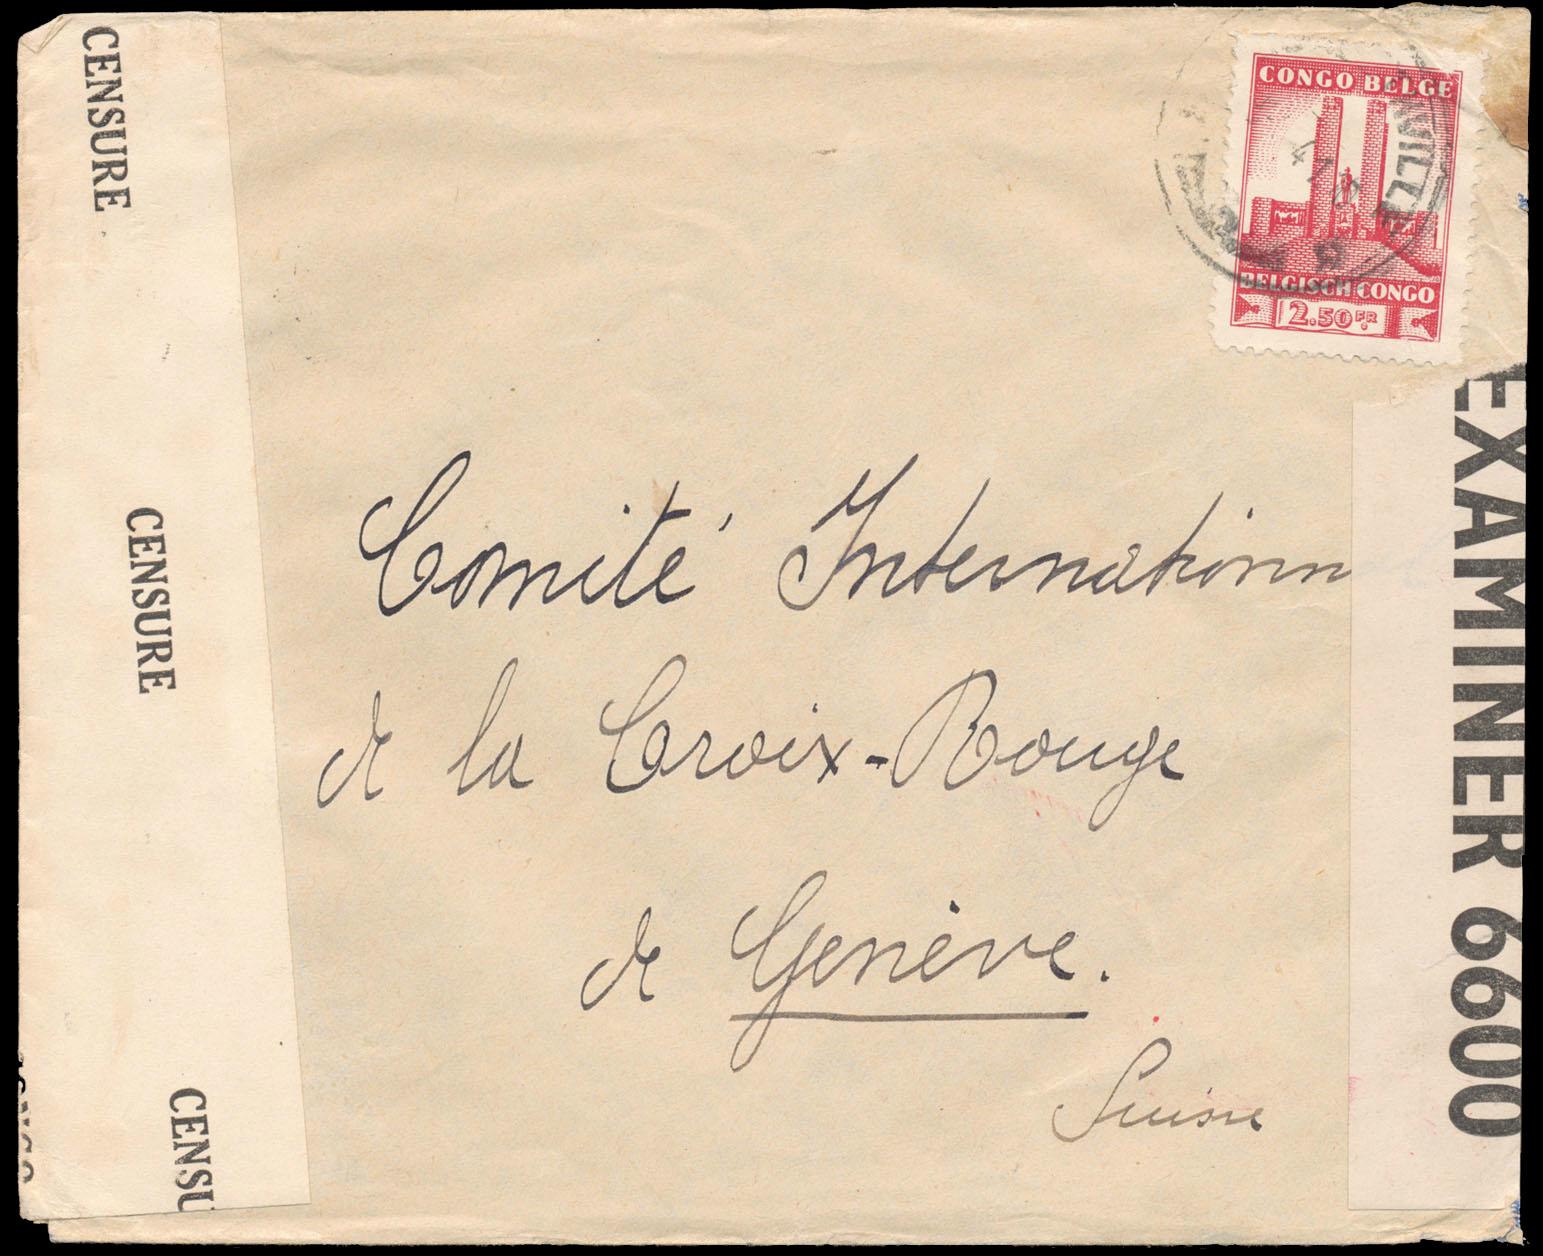 CENSURE
CENSURE
CENSU
CONGO BELGE
BELGISCH CONGO
2.50 FR
Comité Internationn
de la Croix-Rouge
de Genève.
Suisse
EXAMINER 6600